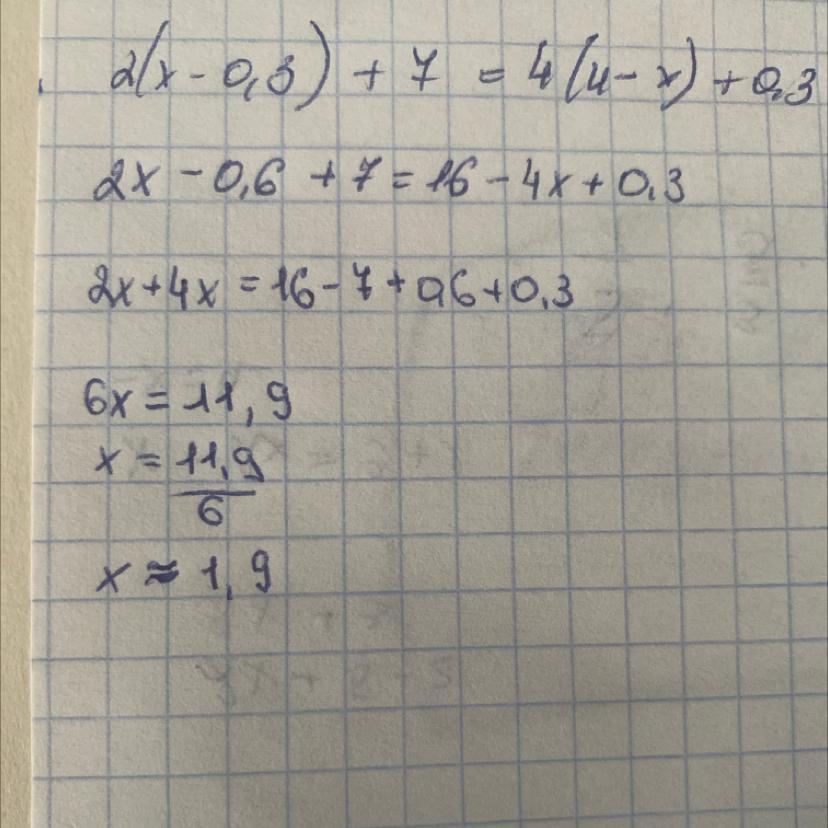 2(x - 0,3) + 7 = 4(4 - x) + 0,3
2x - 0,6 + 7 = 16 - 4x + 0,3
2x + 4x = 16 - 7 + 0,6 + 0,3
6x = 11,9
x = 11,9
6
x ≈ 1,9